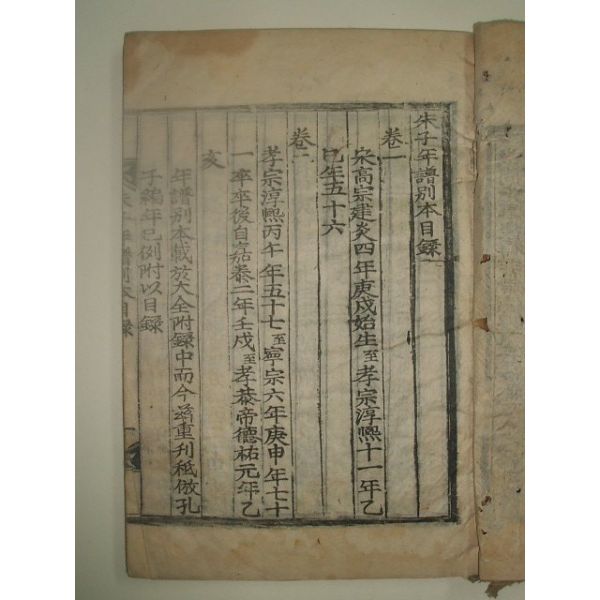 朱子年譜別本目錄
卷一
宋高宗建炎四年庚戌始生至孝宗淳熙十一年乙
巳年五十六
卷二
孝宗淳熙丙午年五十七至寧宗六年庚申年七十
一卒卒後自嘉泰二年壬戌至孝恭帝德祐元年乙
亥
年譜別本載放大全附錄中而今爲重刊秪倣孔
子編年已例附以目錄
朱子年譜別本目錄